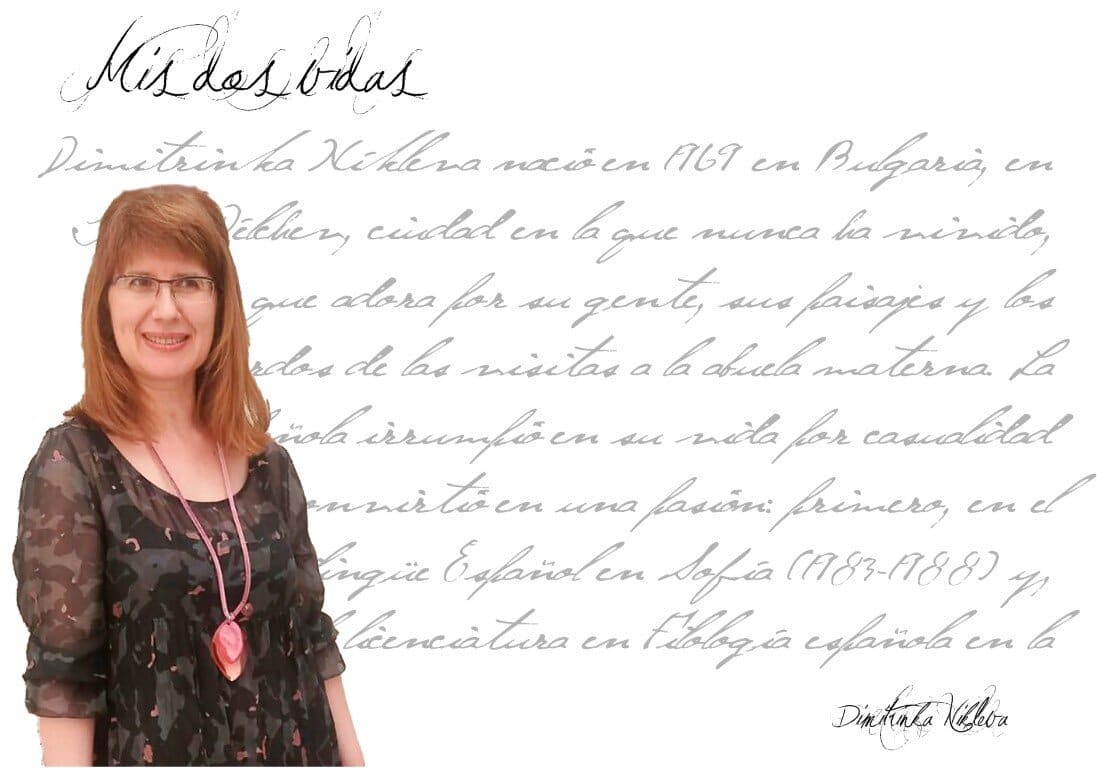 Mis dos vidas
Dimitrinka Níkleva nació en 1969 en Bulgaria, en
Délchev, ciudad en la que nunca ha vivido,
que adora por su gente, sus paisajes y los
de las visitas a la abuela materna. La
irrumpió en su vida por casualidad
en una pasión: primero, en el
Español en Sofía (1983-1988) y,
licenciatura en Filología española en la
Dimitrinka Níkleva